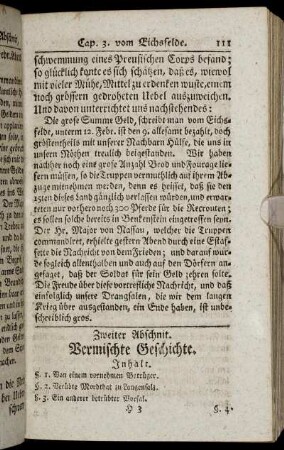 Cap. 3. vom Eichsfelde. 111
schwemmung eines Preusischen Corps befand;
so glücklich konte es sich schätzen, daß es, wiewol
mit vieler Mühe, Mittel zu erdenken wuste, einem
noch grössern gedroheten Uebel auszuweichen.
Und davon unterrichtet uns nachstehendes:
Die große Summe Geld, schreibt man vom Eichs-
felde, unterm 12. Febr. ist den 9. allesamt bezahlt, doch
größtentheils mit unserer Nachbarn Hülfe, die uns in
unsern Nöthen treulich beigestanden. Wir haben
nachher noch eine große Anzahl Brod und Fourage lie-
fern müssen, so die Truppen vermuthlich auf ihren Ab-
zug mitnehmen werden, denn es heisset, daß sie den
15ten dieses Land gänzlich verlassen würden, und erwar-
ten nur vorher noch 300 Pferde für die Recrouten;
es sollen solche bereits in Benkenstein eingetroffen seyn.
Der Hr. Major von Nassau, welcher die Truppen
commandiret, erhielte gestern Abend durch eine Estaf-
fette die Nachricht von dem Frieden; und darauf wur-
de sogleich allenthalben und auch auf den Dörfern an-
gesaget, daß der Soldat für sein Geld zehren solte.
Die Freude über diese vortrefliche Nachricht, und daß
einfolglich unsere Drangsalen, die wir dem langen
Krieg über ausgestanden, ein Ende haben, ist unbe-
schreiblich gros.
Zweiter Abschnit.
Vermischte Geschichte.
Inhalt.
§. 1. Von einem vornehmen Betrüger.
§. 2. Verübte Mordthat zu Langensalz.
§. 3. Ein anderer betrübter Vorfal.
§. 4.